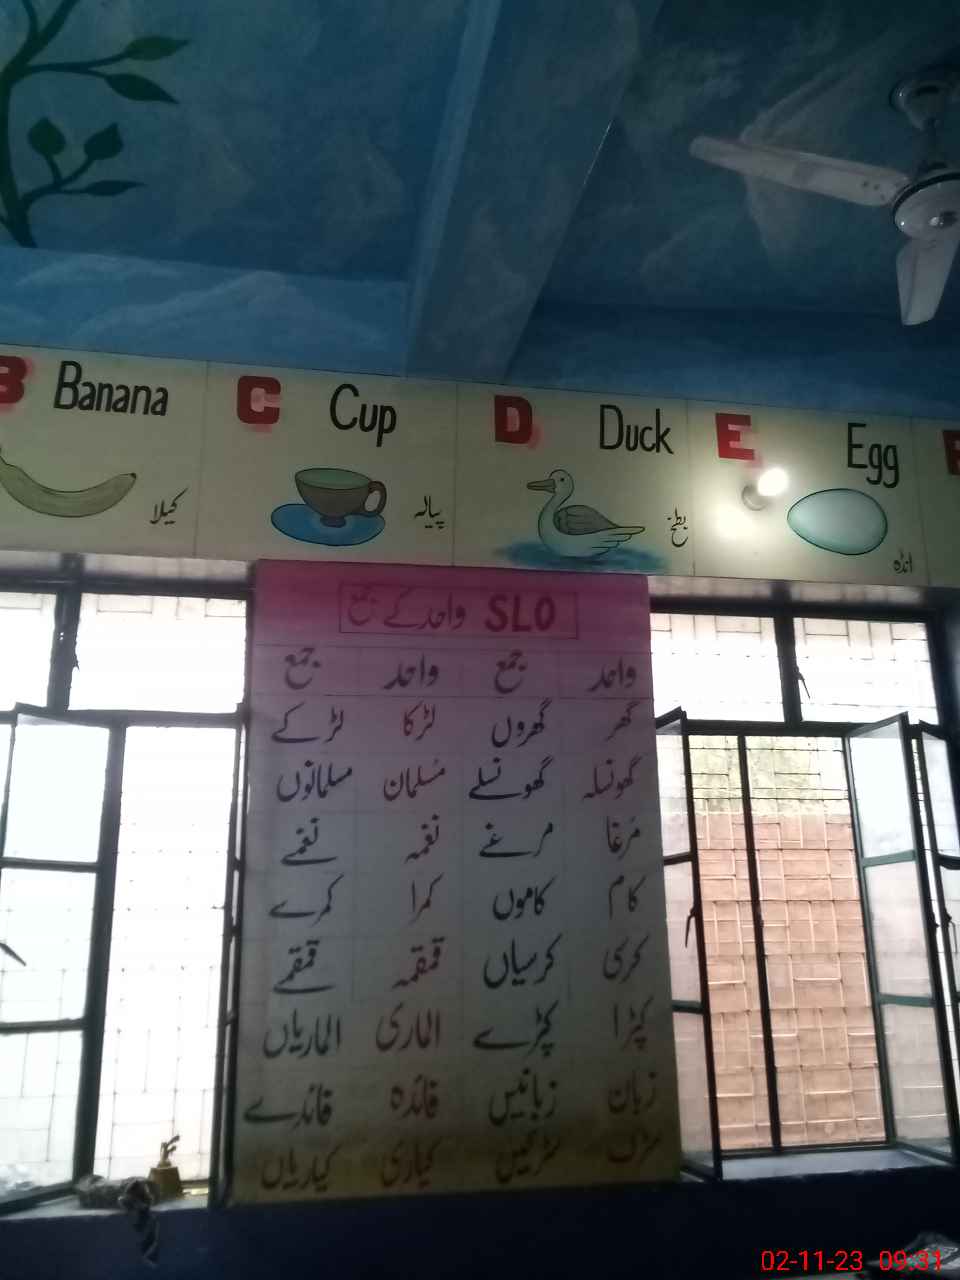 B Banana کیلا
C Cup پیالہ
D Duck بطخ
E Egg انڈہ
SLO واحد کے جمع
واحد جمع واحد جمع
گھر گھروں لڑکا لڑکے
گھونسلہ گھونسلے مُسلمان مسلمانوں
مُرغا مرغے نغمہ نغمے
کام کاموں کمرا کمرے
کرسی کرسیاں قمقمہ قمقمے
کپڑا کپڑے الماری الماریاں
زبان زبانیں فائدہ فائدے
سڑک سڑکیں کیاری کیاریاں
02-11-23 09:31